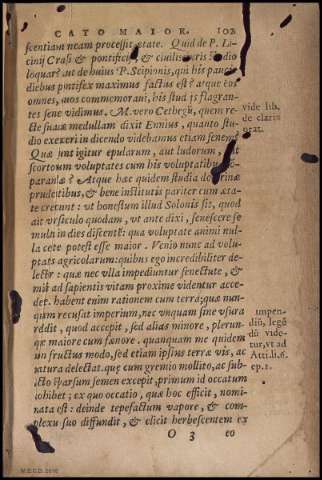 CATO MAIOR. 103
scentiam usque processit ætate. Quid de P. Li-
cinij Crasi & pontificij, & ciuilis iuris studio
loquar? aut de huius P. Scipionis, qui his paucis
diebus pontifex maximus factus est? atque eos
omnes, quos commemoraui, his studijs flagran-
tes sene vidimus. M. vero Cethegū, quem re-
cte suauæ medullam dixit Ennius, quanto stu-
dio exerceri in dicendo videbamus etiam senem?
Quæ sunt igitur epularum, aut ludorum,
scortorum voluptates cum his voluptatibus
parandæ? Atque hæc quidem studia doctrinæ
prudētibus, & bene institutis pariter cum æta-
te crescunt: vt honestum illud Solonis sit, quod
ait versiculo quodam, vt ante dixi, senescere se
multa in dies discentē: qua voluptate animi nul-
la certe potest esse maior. Venio nunc ad volup-
tates agricolarum: quibus ego incredibiliter de-
lector: quæ nec vlla impediuntur senectute, &
mihi ad sapientis vitam proxime videntur acce-
dere. habent enim rationem cum terra; quæ nun-
quam recusat imperium, nec vnquam sine vsura
reddit, quod accepit, sed alias minore, plerun-
que maiore cum fœnore. quanquam me quidem
non fructus modo, sed etiam ipsius terræ vis, ac
natura delectat. quę cum gremio mollito, ac sub-
acto sparsum semen excepit, primum id occatum
cohibet; ex quo occatio, quæ hoc efficit, nomi-
nata est: deinde tepefactum vapore, & com-
plexu suo diffundit, & elicit herbescentem ex
O 3 eo
vide lib.
de claris
orat.
impen-
diū, legē-
dū vide-
tur, vt ad
Atti. li. 6.
ep. 1.